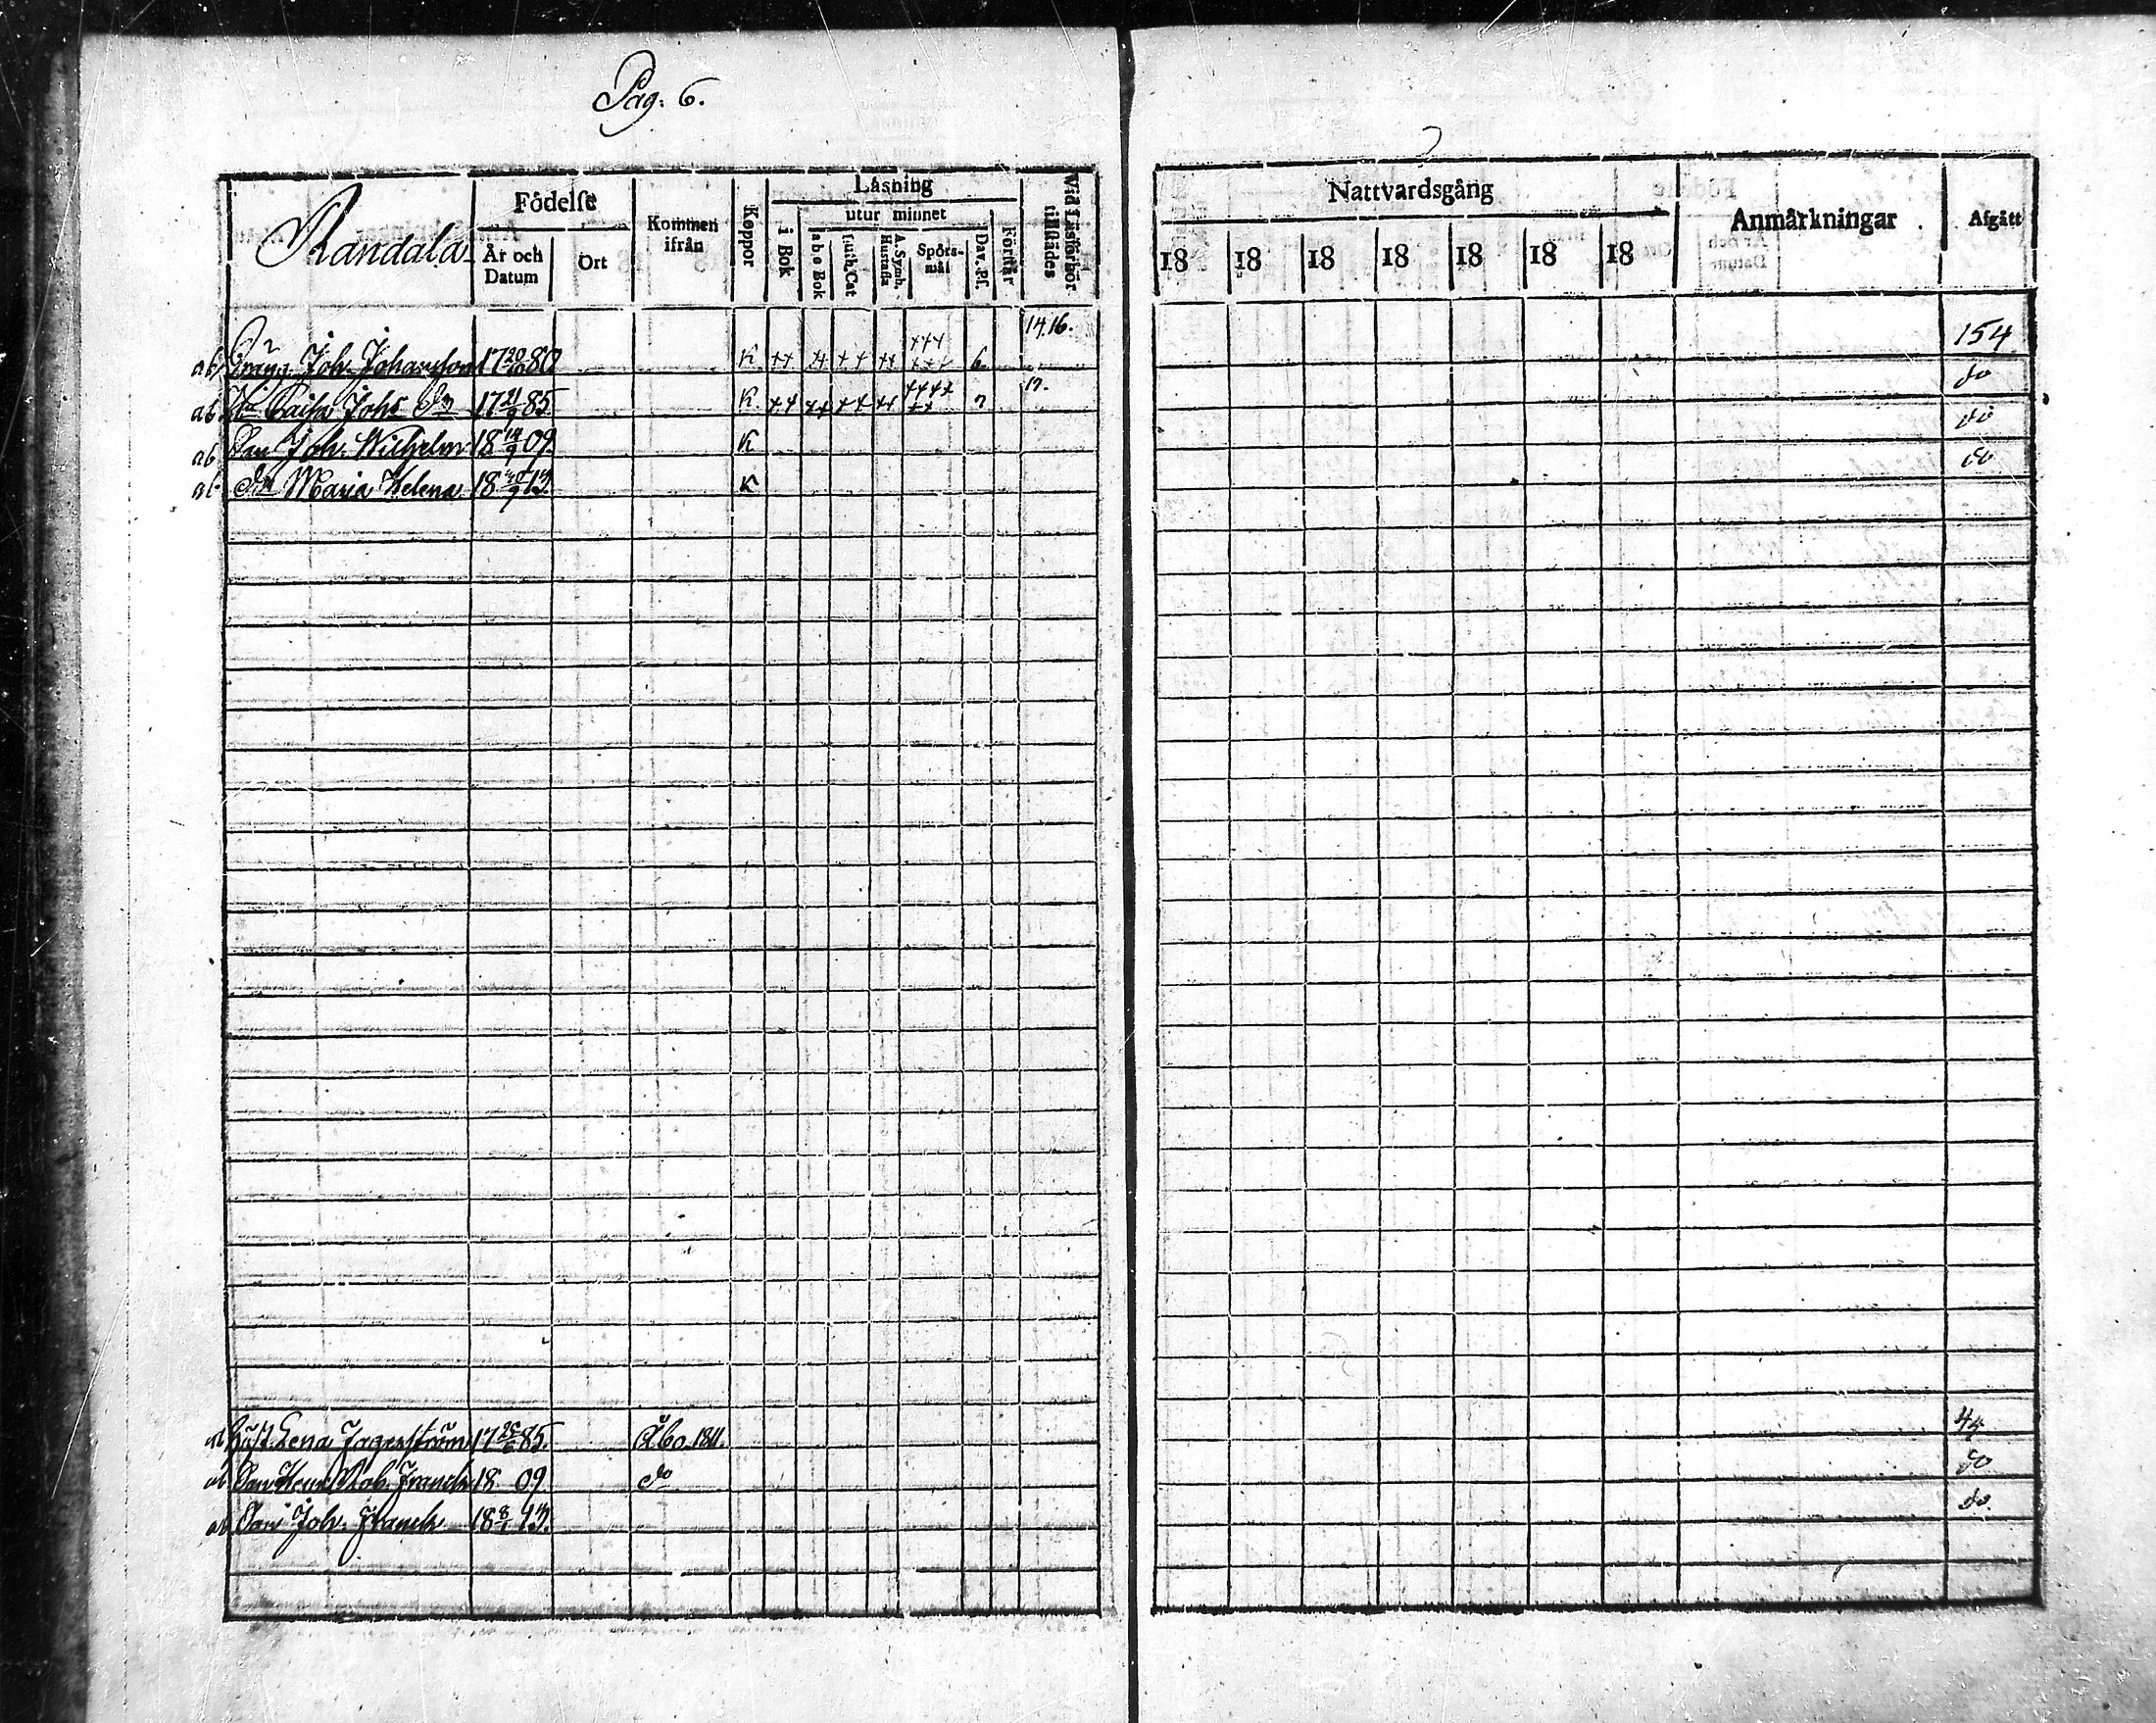 Pag. 6.
Randala
Födelse
År och Datum
Ort
Kommen ifrån
Koppor
Läsning
i Bok
utur minnet
a b c Bok
Luth. Cat
A. Symb. Hustafla
Spörs-mål
Dav. Ps.
Förstår
Vid Läsförhör tillstädes
Nattvardsgång
18 18 18 18 18 18 18
Anmärkningar
Afgått
ab Joh. Johansson 17 20/10 80 K ++ ++ ++ ++ +++ +++ 6. 14.16. 154
ab Caisa Johs Dr 17 21/9 85. K. ++ ++ ++ ++ ++++ ++ 7 17. do
ab Son Joh. Wilhelm 18 14/9 09. K do
ab Dr Maria Helena 18 /9 13. K do
ab Hust. Lena Jagerström 17 85. Åbo 1811. 44
ab Son Rob. Franck 18 09 do do
ab Son Joh. Franck 18 8/1 13. do.